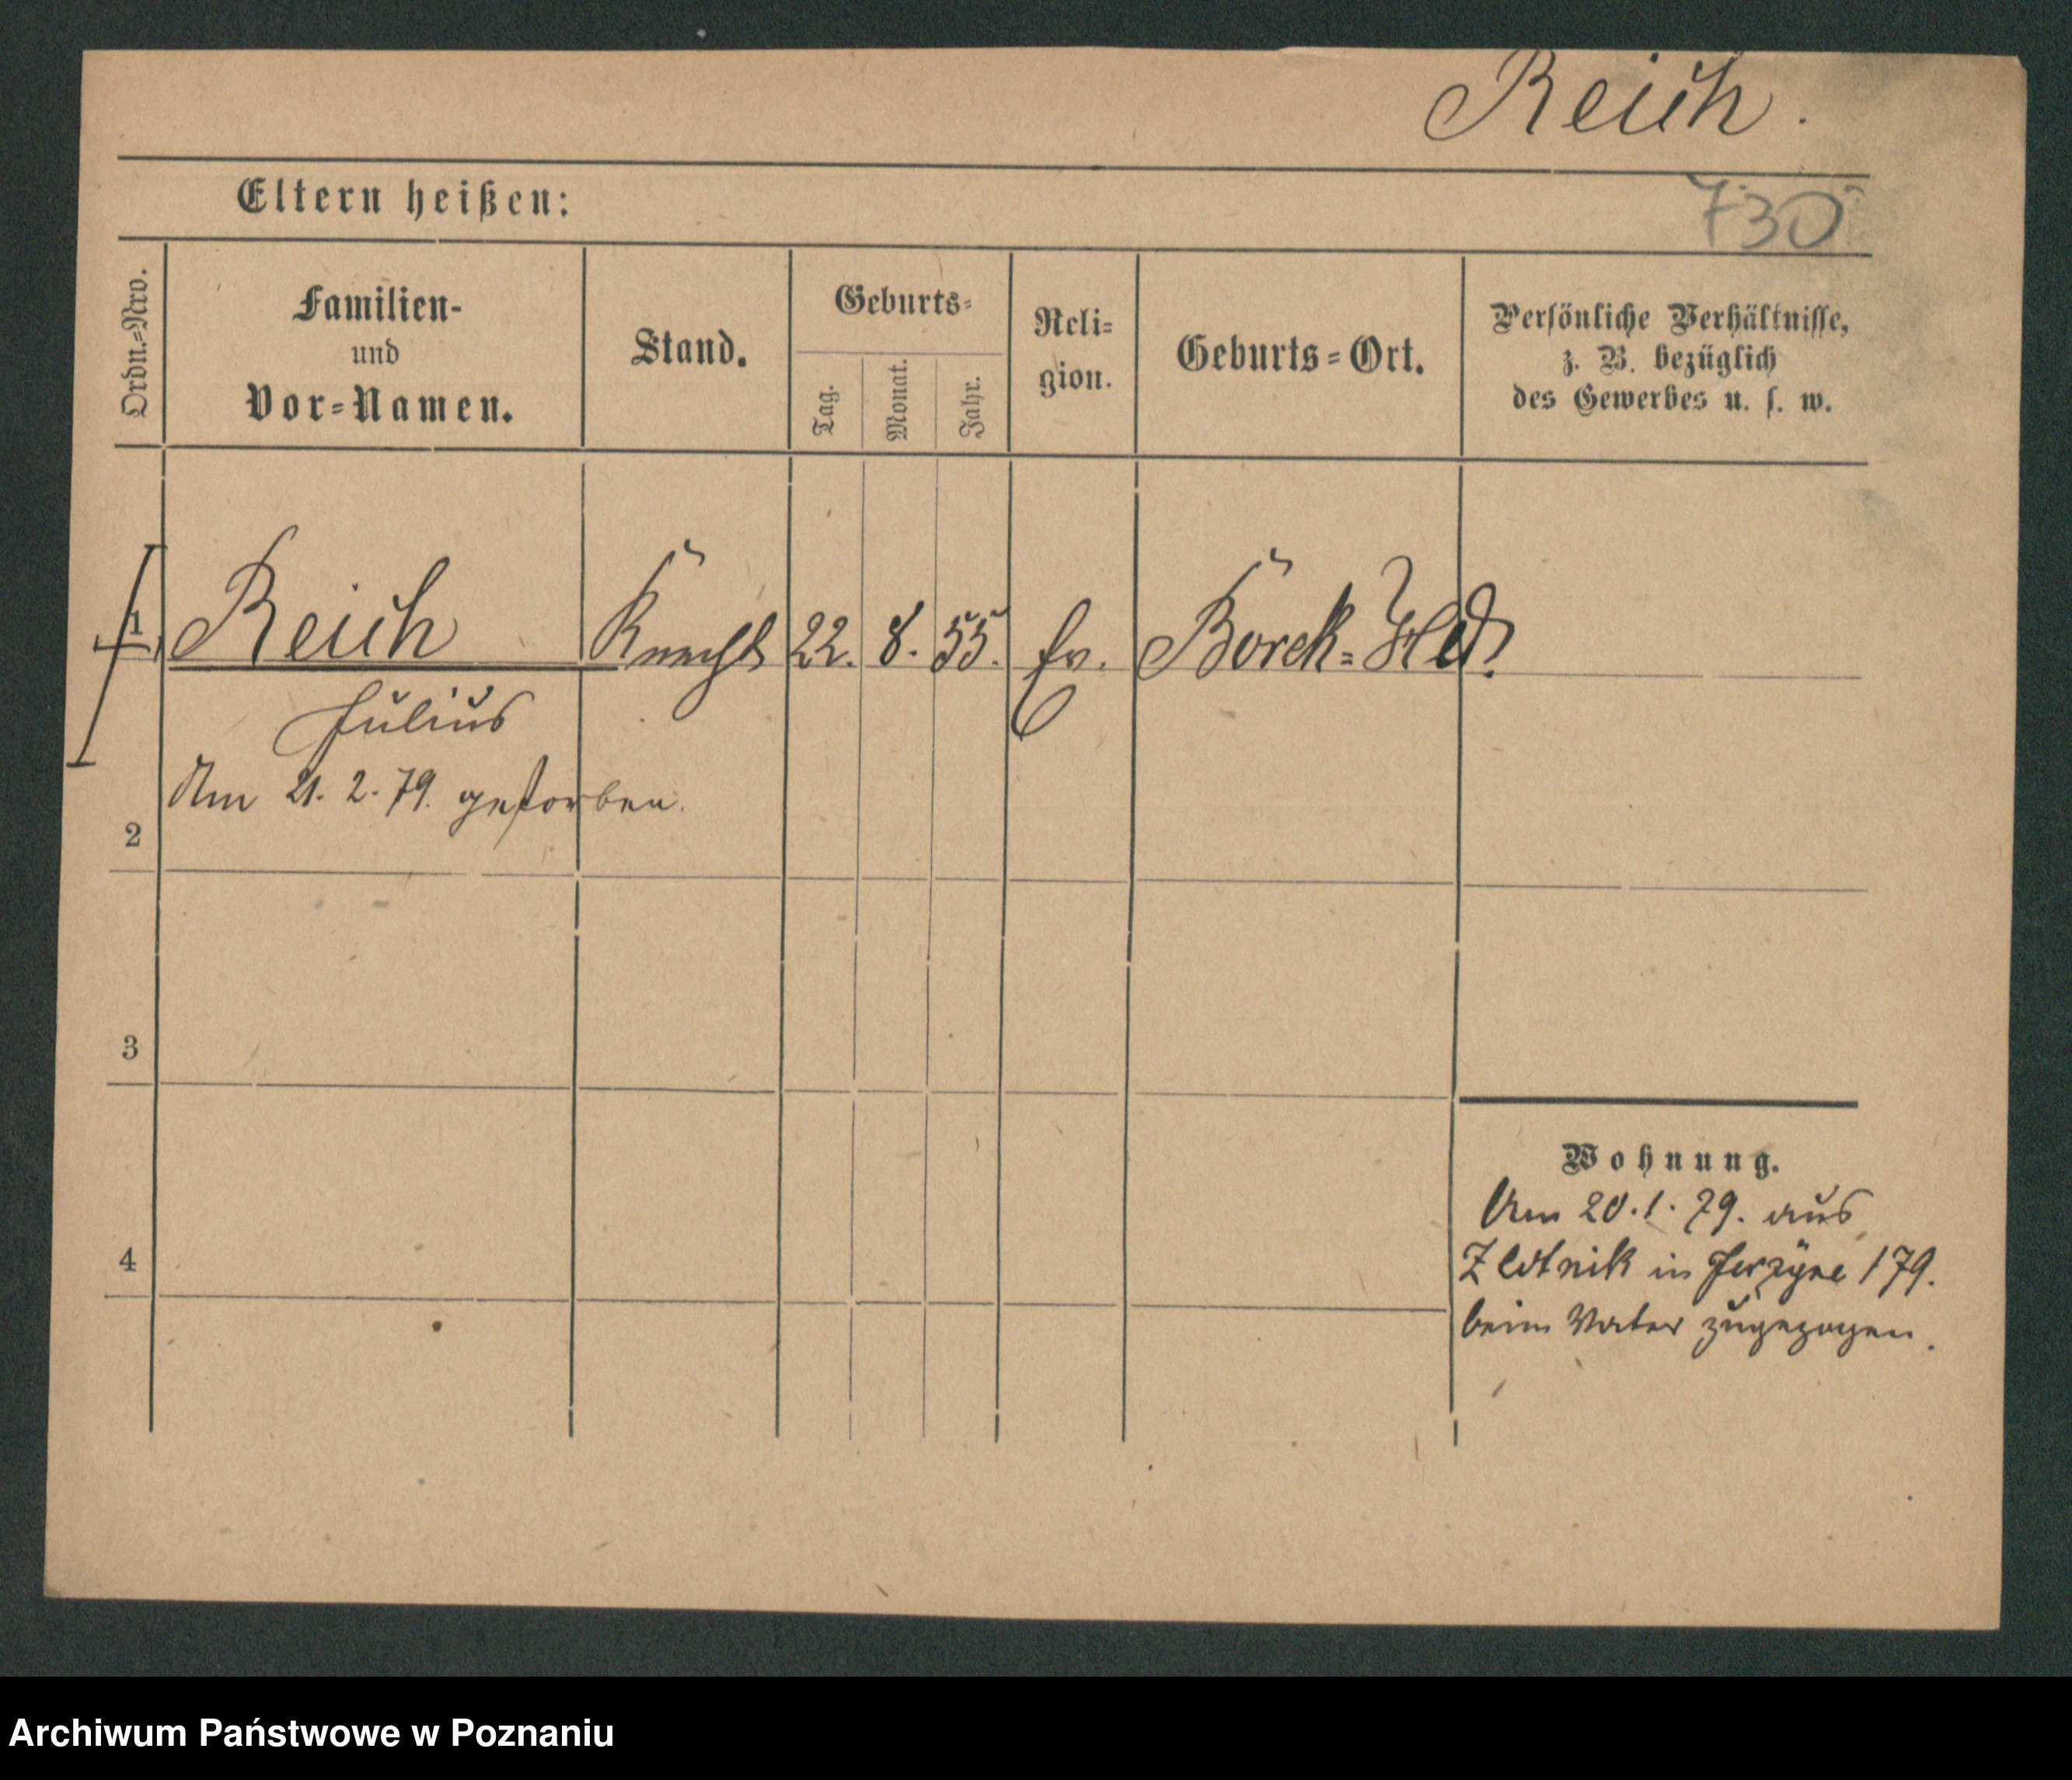 Reich.
730
Eltern heißen:
Ordn.=Nro.
Familien-
und
Vor=Namen.
Stand.
Geburts=
Tag.
Monat.
Jahr.
Reli=
gion.
Geburts=Ort.
Persönliche Verhältnisse,
z. B. bezüglich
des Gewerbes u. s. w.
1 Reich Knecht 22. 8. 55. Ev. Borek= Hld.
Julius
Am 21. 2. 79. gestorben.
2
3
4
Wohnung.
Am 20. 1. 79. aus
Zlotnik in Jerzyce 179.
beim Vater zugezogen.
Archiwum Państwowe w Poznaniu